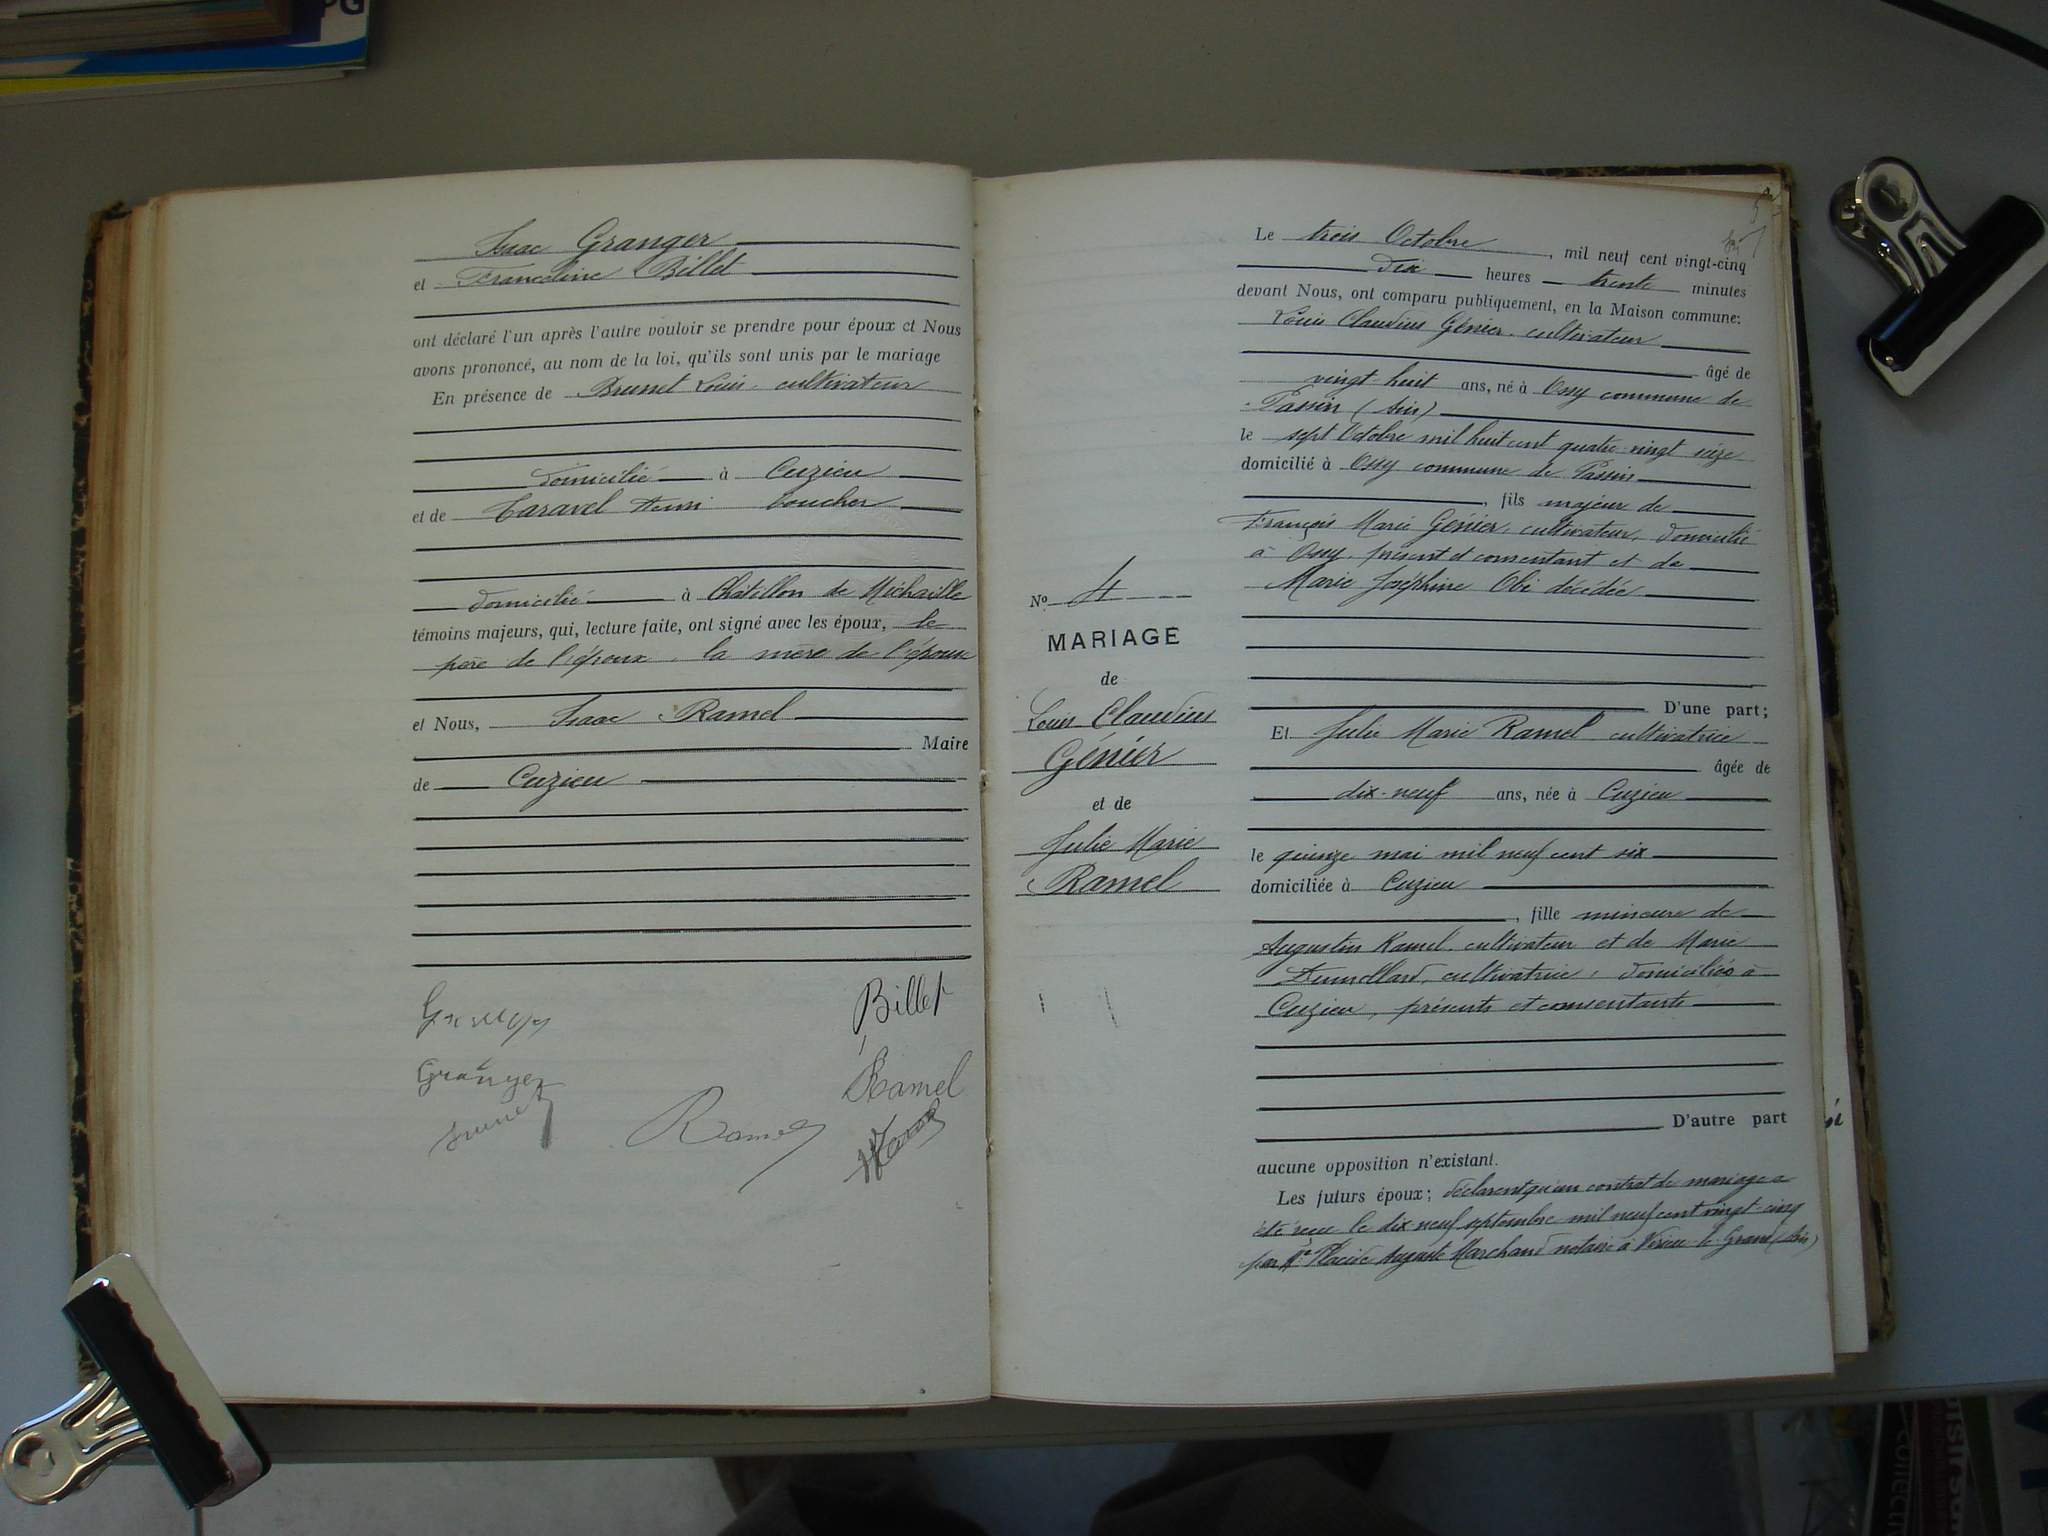 Isaac Granger
et Franceline Billet
ont déclaré l'un après l'autre vouloir se prendre pour époux et Nous
avons prononcé, au nom de la loi, qu'ils sont unis par le mariage
En présence de Brunet Louis, cultivateur
domicilié à Cuzieu
et de Caravel Henri boucher
domicilié à Châtillon de Michaille
témoins majeurs, qui, lecture faite, ont signé avec les époux, le
père de l'époux, la mère de l'épouse
et Nous, Isaac Ramel
Maire
de Cuzieu
Billet
Granger
Ramel
Brunet
Ramel
Le trois Octobre, mil neuf cent vingt-cinq
dix heures trente minutes
devant Nous, ont comparu publiquement, en la Maison commune:
Louis Claudius Génier, cultivateur
âgé de
vingt-huit ans, né à Ossy commune de
Passin (Ain)
le sept Octobre mil huit cent quatre-vingt seize
domicilié à Ossy commune de Passin
, fils majeur de
François Marie Génier, cultivateur, domicilié
à Ossy, présent et consentant et de
Marie Joséphine Obi décédée
D'une part;
No 4
MARIAGE
de
Louis Claudius
Génier
et de
Julie Marie
Ramel
Et Julie Marie Ramel cultivatrice
âgée de
dix-neuf ans, née à Cuzieu
le quinze mai mil neuf cent six
domiciliée à Cuzieu
, fille mineure de
Augustin Ramel, cultivateur et de Marie
cultivatrice, domiciliés à
Cuzieu, présents et consentants
D'autre part
aucune opposition n'existant.
Les futurs époux; déclarent qu'un contrat de mariage a
été reçu le dix neuf septembre mil neuf cent vingt-cinq
par Me Placide Auguste Marchand notaire à Virieu-le-Grand (Ain)